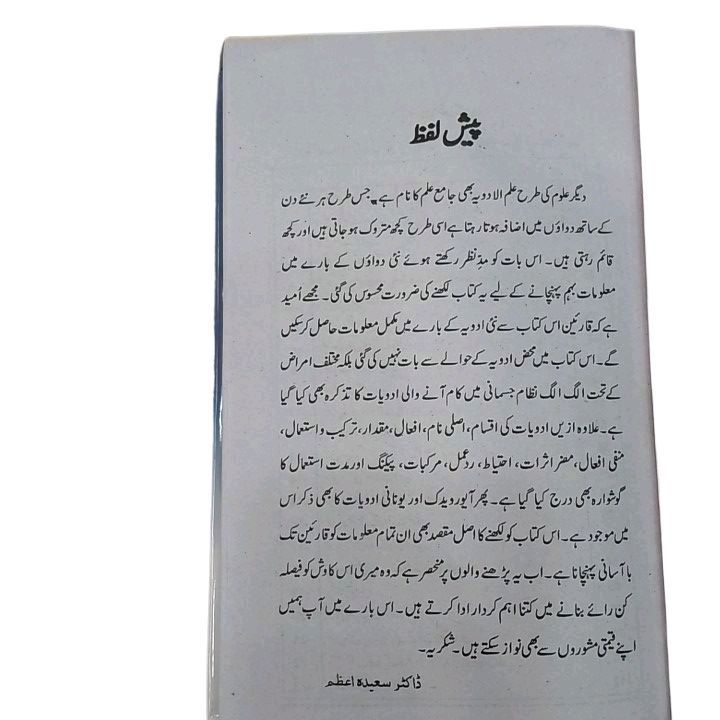 پیش لفظ
دیگر علوم کی طرح علم الادویہ بھی جامع علم کا نام ہے۔ جس طرح ہر نئے دن
کے ساتھ دواؤں میں اضافہ ہوتا رہتا ہے اسی طرح کچھ متروک ہو جاتی ہیں اور کچھ
قائم رہتی ہیں۔ اس بات کو مدِنظر رکھتے ہوئے نئی دواؤں کے بارے میں
معلومات بہم پہنچانے کے لیے یہ کتاب لکھنے کی ضرورت محسوس کی گئی۔ مجھے اُمید
ہے کہ قارئین اس کتاب سے نئی ادویہ کے بارے میں مکمل معلومات حاصل کر سکیں
گے۔ اس کتاب میں محض ادویہ کے حوالے سے بات نہیں کی گئی بلکہ مختلف امراض
کے تحت الگ الگ نظام جسمانی میں کام آنے والی ادویات کا تذکرہ بھی کیا گیا
ہے۔ علاوہ ازیں ادویات کی اقسام، اصلی نام، افعال، مقدار، ترکیب و استعمال،
منفی افعال، مضر اثرات، احتیاط، ردعمل، مرکبات، پیکنگ اور مدت استعمال کا
گوشوارہ بھی درج کیا گیا ہے۔ پھر آیورویدک اور یونانی ادویات کا بھی ذکر اس
میں موجود ہے۔ اس کتاب کو لکھنے کا اصل مقصد بھی ان تمام معلومات کو قارئین تک
با آسانی پہنچانا ہے۔ اب یہ پڑھنے والوں پر منحصر ہے کہ وہ میری اس کاوش کو فیصلہ
کن رائے بنانے میں کتنا اہم کردار ادا کرتے ہیں۔ اس بارے میں آپ ہمیں
اپنے قیمتی مشوروں سے بھی نواز سکتے ہیں۔ شکریہ۔
ڈاکٹر سعیدہ اعظم